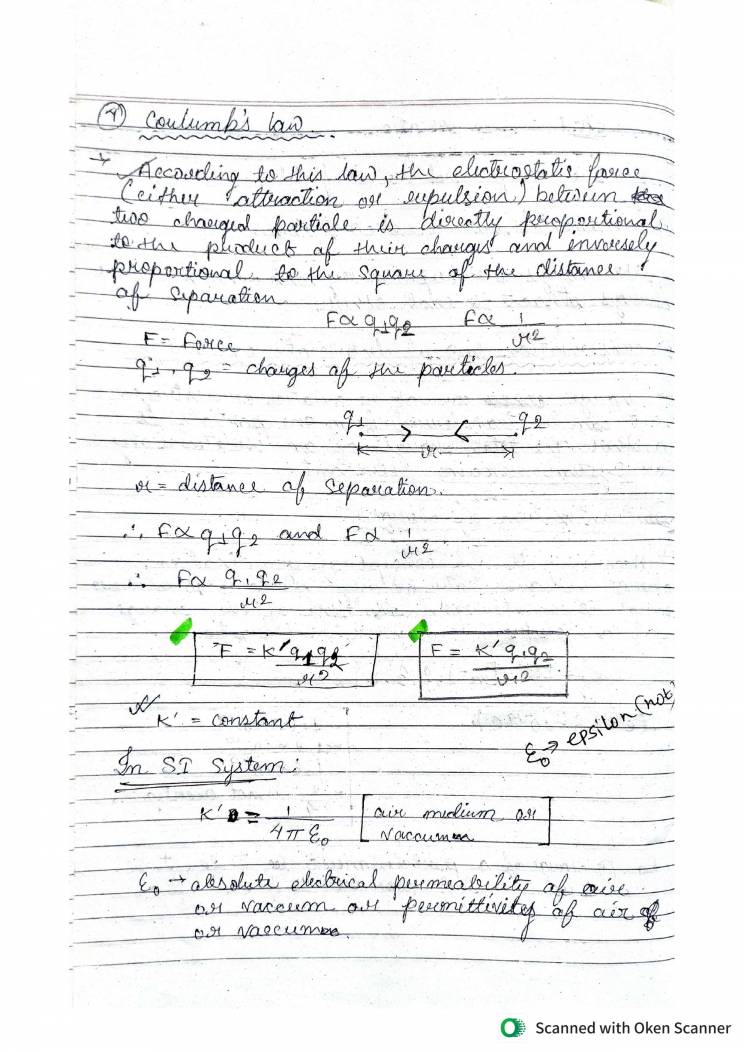 ④ Coulumb's law
→ According to this law, the electrostatic force
(either attraction or repulsion) between
two charged particle is directly proportional
to the product of their charges and inversely
proportional to the square of the distance
of separation
F∝ q₁q₂ F∝ 1/r²
F = Force
q₁, q₂ = charges of the particles.
q₁ q₂
r
r = distance of separation.
∴ F∝ q₁q₂ and F∝ 1/r²
∴ F∝ q₁q₂/r²
F = K'q₁q₂/r² F = K'q₁q₂/r²
K' = constant
ε₀→ epsilon (not)
In SI System:
K' = 1/4πε₀ [air medium or
vaccum]
ε₀ → absolute electrical permeability of air
or vaccum or permittivity of air
or vaccum.
Scanned with Oken Scanner